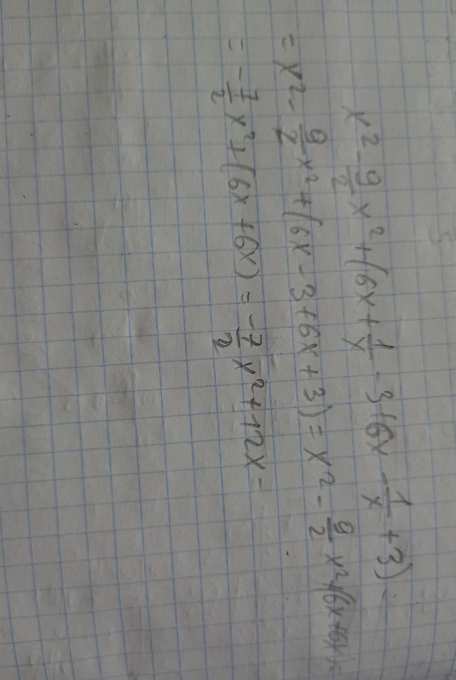 x² - 9/2 x² + (6x + 1/x - 3 + 6x - 1/x + 3) =
= x² - 9/2 x² + (6x - 3 + 6x + 3) = x² - 9/2 x² + (6x + 6x) =
= - 7/2 x² + (6x + 6x) = - 7/2 x² + 12x -